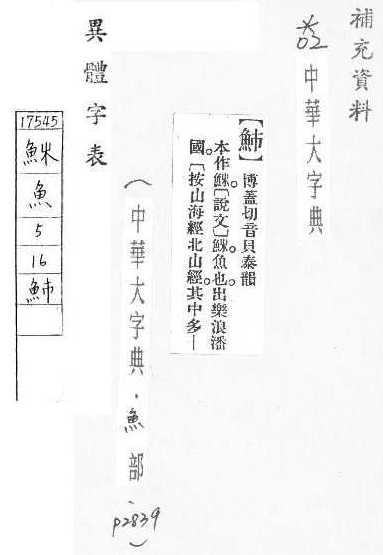 補充資料
02 中華大字典
【䰽】博蓋切音貝泰韻
本作䱅。〔說文〕䱅魚也。出樂浪潘
國。〔按山海經北山經。其中多—
(中華大字典.魚部、p2839)
異體字表
17545
魚
5
16